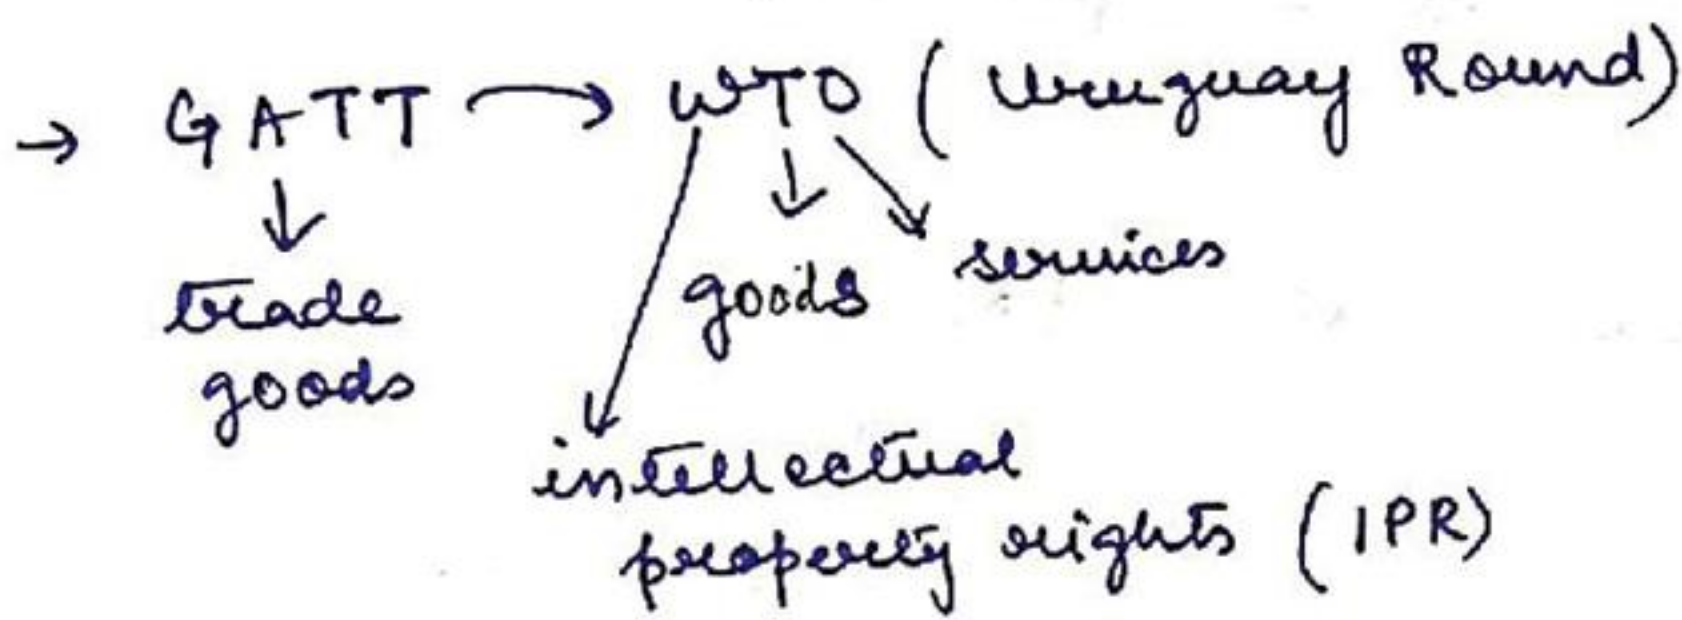 → GATT → WTO (Uruguay Round)
↓ ↓
trade goods services
goods
intellectual
property rights (IPR)